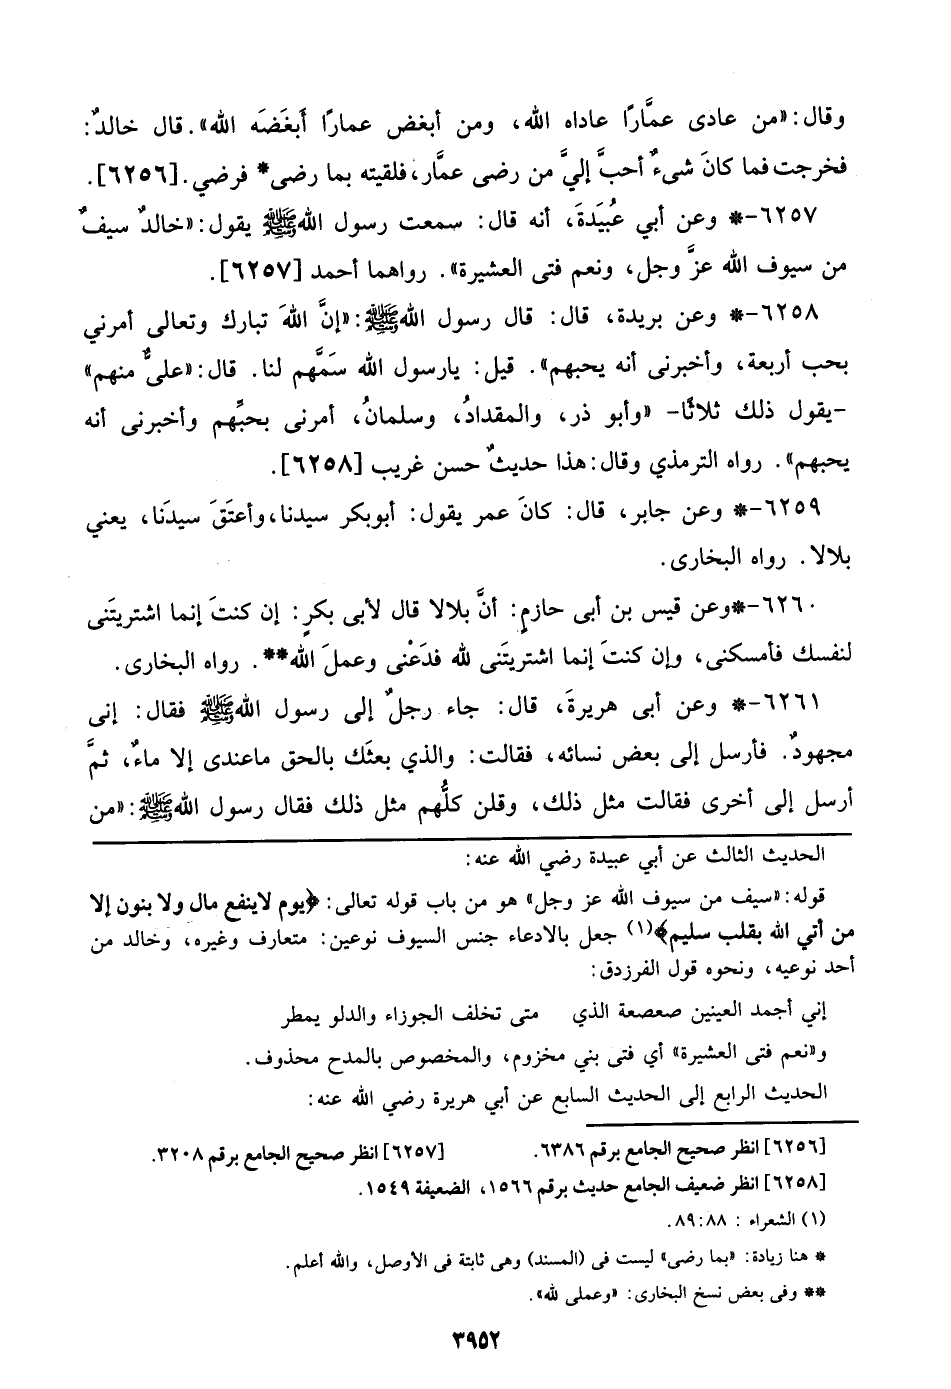 وقال: «من عادى عمَّارًا عاداه الله، ومن أبغض عمارًا أَبغَضَه الله». قال خالدٌ:
فخرجت فما كانَ شىءٌ أحبَّ إليَّ من رضى عمَّار، فلقيته بما رضى* فرضي. [٦٢٥٦].
٦٢٥٧-* وعن أبي عُبَيدَةَ، أنه قال: سمعت رسول اللهﷺ يقول: «خالدٌ سيفٌ
من سيوف الله عزَّ وجل، ونعم فتى العشيرة». رواهما أحمد [٦٢٥٧].
٦٢٥٨-* وعن بريدة، قال: قال رسول اللهﷺ: «إنَّ اللهَ تبارك وتعالى أمرني
بحب أربعة، وأخبرنى أنه يحبهم». قيل: يارسول الله سَمَّهم لنا. قال: «علىٌّ منهم»
-يقول ذلك ثلاثًا- «وأبو ذر، والمقدادُ، وسلمانُ، أمرنى بحبِّهم وأخبرنى أنه
يحبهم». رواه الترمذي وقال: هذا حديثٌ حسن غريب [٦٢٥٨].
٦٢٥٩-* وعن جابر، قال: كانَ عمر يقول: أبوبكر سيدنا، وأعتَقَ سيدَنا، يعني
بلالا. رواه البخارى.
٦٢٦٠-*وعن قيس بن أبى حازمٍ: أنَّ بلالا قال لأبى بكرٍ: إن كنتَ إنما اشتريتَنى
لنفسك فأمسكنى، وإن كنتَ إنما اشتريتَنى لله فدَعْنى وعملَ الله**. رواه البخارى.
٦٢٦١-* وعن أبى هريرةَ، قال: جاء رجلٌ إلى رسول اللهﷺ فقال: إنى
مجهودٌ. فأرسل إلى بعض نسائه، فقالت: والذي بعثَك بالحق ماعندى إلا ماءٌ، ثمَّ
أرسل إلى أخرى فقالت مثل ذلك، وقلن كلُّهم مثل ذلك فقال رسول اللهﷺ: «من
الحديث الثالث عن أبي عبيدة رضي الله عنه:
قوله: «سيف من سيوف الله عز وجل» هو من باب قوله تعالى: ﴿يوم لاينفع مال ولا بنون إلا
من أتي الله بقلب سليم﴾(١) جعل بالادعاء جنس السيوف نوعين: متعارف وغيره، وخالد من
أحد نوعيه، ونحوه قول الفرزدق:
إني أجمد العينين صعصعة الذي متى تخلف الجوزاء والدلو يمطر
و«نعم فتى العشيرة» أي فتى بني مخزوم، والمخصوص بالمدح محذوف.
الحديث الرابع إلى الحديث السابع عن أبي هريرة رضي الله عنه:
[٦٢٥٦] انظر صحيح الجامع برقم ٦٣٨٦. [٦٢٥٧] انظر صحيح الجامع برقم ٣٢٠٨.
[٦٢٥٨] انظر ضعيف الجامع حديث برقم ١٥٦٦، الضعيفة ١٥٤٩.
(١) الشعراء : ٨٨: ٨٩.
* هنا زيادة: «بما رضى» ليست فى (المسند) وهى ثابتة فى الأوصل، والله أعلم.
** وفى بعض نسخ البخارى: «وعملى لله».
٣٩٥٢